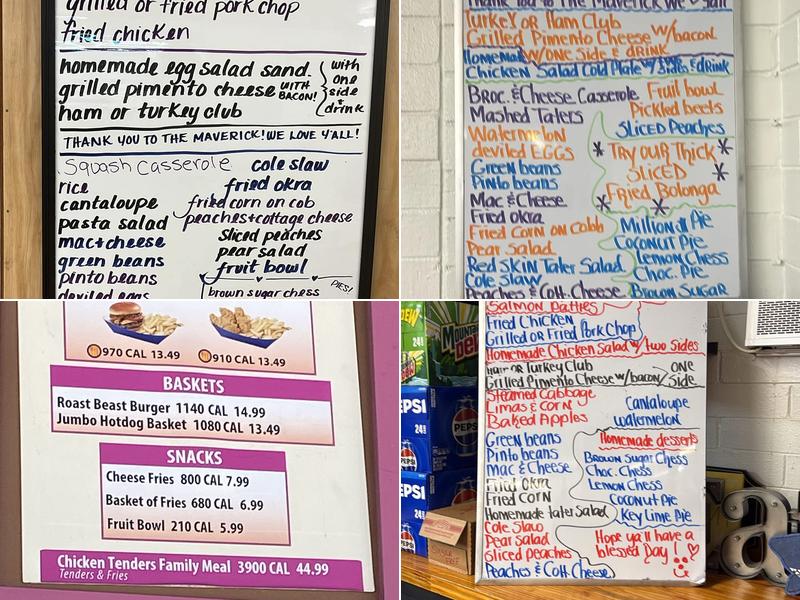 grilled or fried pork chop
fried chicken
homemade egg salad sand.
grilled pimento cheese WITH BACON!
ham or turkey club
with one side & drink
THANK YOU TO THE MAVERICK! WE LOVE Y'ALL!
Squash Casserole
rice
cantaloupe
pasta salad
mac+cheese
green beans
pinto beans
deviled eggs
cole slaw
fried okra
fried corn on cob
peaches+cottage cheese
sliced peaches
pear salad
fruit bowl
PIES!
brown sugar chess
Turkey or Ham Club
Grilled Pimento Cheese w/bacon
Homemade w/one Side & drink
Chicken Salad Cold Plate w/ Sides & drink
Broc. & Cheese Casserole
Mashed Taters
Watermelon
deviled EGGS
Green beans
Pinto beans
Mac & Cheese
Fried Okra
Fried Corn on Cobb
Pear Salad
Red Skin Tater Salad
Cole Slaw
Peaches & Cott. Cheese
Fruit bowl
Pickled beets
Sliced Peaches
Try our Thick
Sliced
Fried Bolonga
Million $ Pie
Coconut Pie
Lemon Chess
Choc. Pie
Brown Sugar
970 CAL 13.49
910 CAL 13.49
BASKETS
Roast Beast Burger 1140 CAL 14.99
Jumbo Hotdog Basket 1080 CAL 13.49
SNACKS
Cheese Fries 800 CAL 7.99
Basket of Fries 680 CAL 6.99
Fruit Bowl 210 CAL 5.99
Chicken Tenders Family Meal 3900 CAL 44.99
Tenders & Fries
Mountain Dew
24
PEPSI
24
PEPSI
Salmon Patties
Fried Chicken
Grilled or Fried Pork Chop
Homemade Chicken Salad w/ two Sides
Ham or Turkey Club
Grilled Pimento Cheese w/bacon/ one Side
Steamed Cabbage
Limas & Corn
Baked Apples
Green beans
Pinto beans
Mac & Cheese
Fried Okra
Fried Corn
Homemade Tater Salad
Cole Slaw
Pear Salad
Sliced Peaches
Peaches & Cott. Cheese
Cantaloupe
Watermelon
Homemade desserts
Brown Sugar Chess
Choc. Chess
Lemon Chess
Coconut Pie
Key Lime Pie
Hope ya'll have a
blessed Day!
a